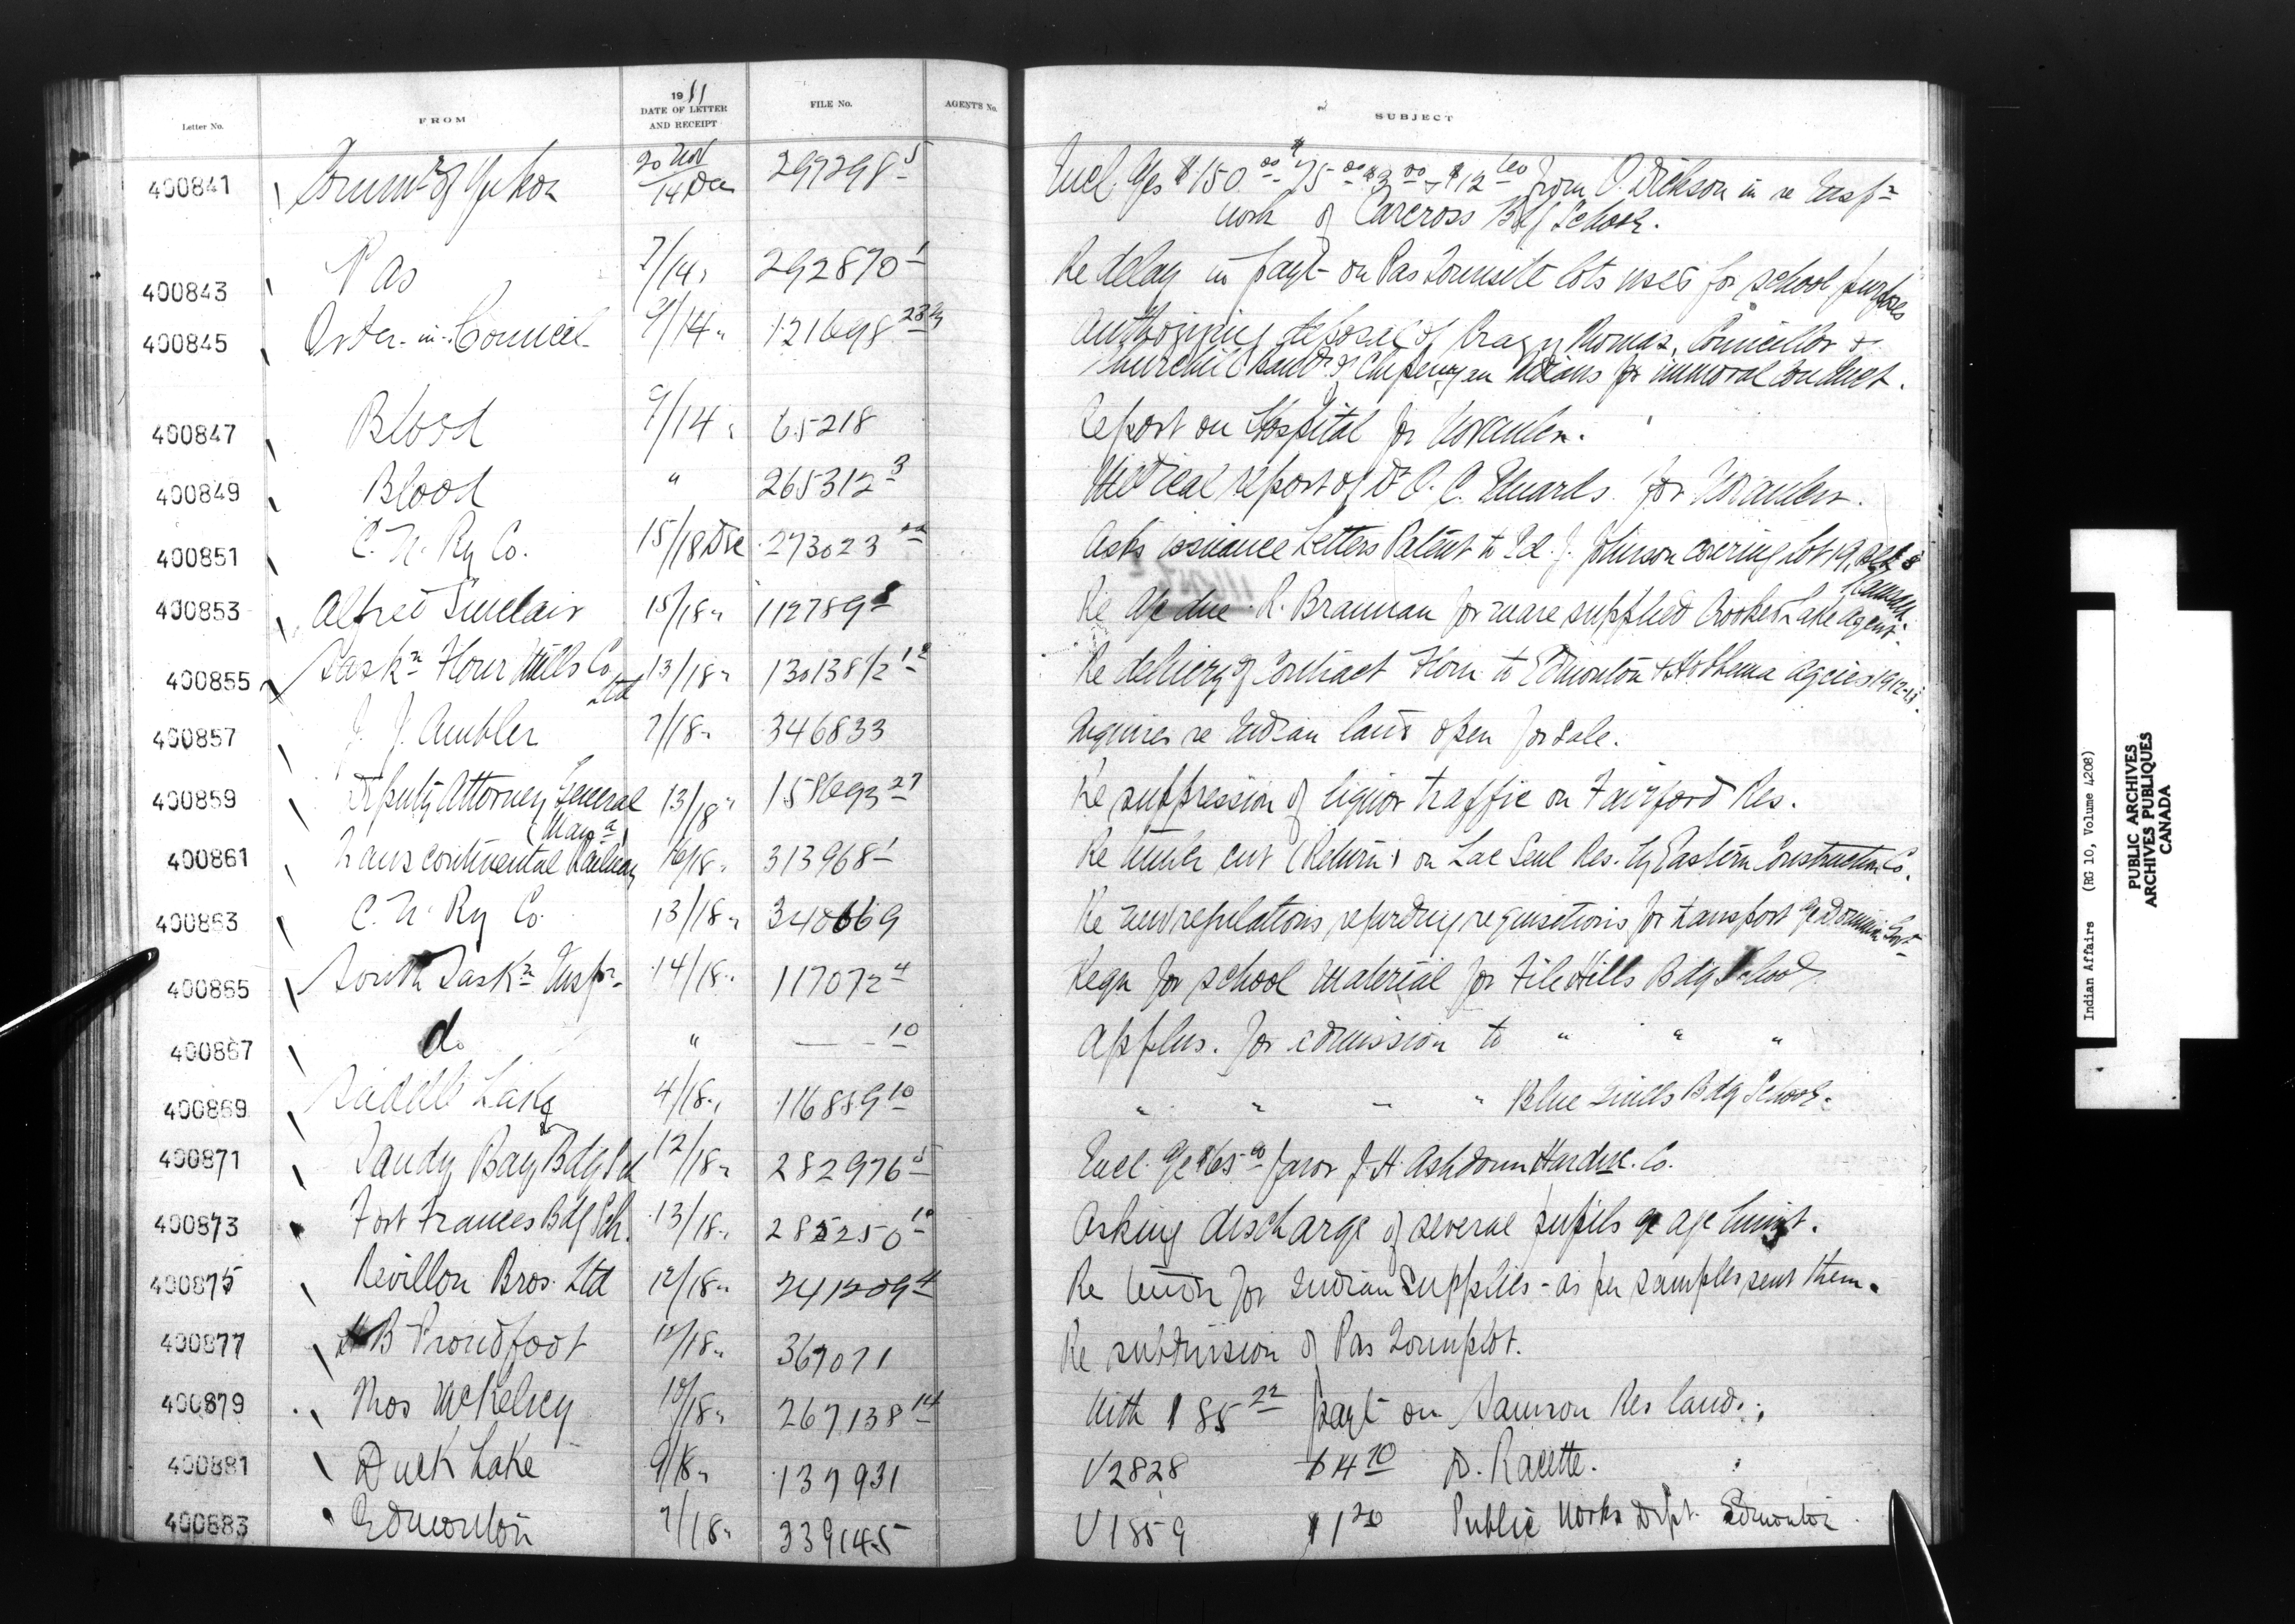 Letter No. FROM 1911 DATE OF LETTER AND RECEIPT FILE No. AGENT'S No. SUBJECT
400841 Commr of Yukon 20 Nov/14 Dec 297298-5 Encl. a/cs $150.00 $75.00 $3.00 & $12.00 from O. Dickson in re Inspn
work of Carcross Bdg School.
400843 Pas 7/14 " 292870-1 Re delay in payt on Pas Townsite lots used for school purposes
400845 Order-in-Council 9/14 " 121698-23 Authorizing deposal of Thomas, Councillor of
Churchill band of Chipewyan Indians for immoral conduct.
400847 Blood 9/14 " 65218 Report on Hospital for November.
400849 Blood " 265312-3 Medical report of Dr O. C. Edwards for November.
400851 C. N. Ry Co. 15/18 Dec 273023 Asks issuance Letters Patent to Ed. J. Johnson covering lot 19, Blk 8
Kamsack.
400853 Alfred Sinclair 15/18 " 112789 Re a/c due R. Brannan for mare supplied Crooked Lake Agent.
400855 Saskn Flour Mills Co Ltd 13/18 " 130138/2-12 Re delivery of Contract Flour to Edmonton & Hobbema agcies 1912-13.
400857 J. J. Ambler 7/18 " 346833 Inquires re Indian land open for sale.
400859 Deputy Attorney General (Mana) 13/18 " 158693-27 Re suppression of liquor traffic on Fairford Res.
400861 Transcontinental Railway 16/18 " 313968-1 Re timber cut (Return) on Lac Seul Res. by Eastern Construction Co.
400863 C. N. Ry Co. 13/18 " 340669 Re new regulations regarding requisitions for transport a/c Dominion Govt
400865 South Saskn Inspn 14/18 " 117072-4 Reqn for school material for File Hills Bdg School
400867 do " — -10 Applns. for admission to " " "
400869 Saddle Lake 4/18 " 116889-10 " " " " Blue Quills Bdg School.
400871 Sandy Bay Bdg Sch 12/18 " 282976-5 Encl. a/c $65.00 favor J. H. Ashdown Hardwe. Co.
400873 Fort Frances Bdg Sch. 13/18 " 285250-10 Asking discharge of several pupils a/c age limit.
400875 Revillon Bros. Ltd 12/18 " 241209-4 Re tender for Indian supplies - as per samples sent them.
400877 H B Proudfoot 12/18 " 367071 Re subdivision of Pas Townplot.
400879 Thos McKelvey 10/18 " 267138-14 With $85.22 payt on Samson Res land.
400881 Duck Lake 9/18 " 137931 V2828 $4.70 D. Racette.
400883 Edmonton 7/18 " 339145 V1859 $1.20 Public Works Dept. Edmonton.
Indian Affairs (RG 10, Volume 4208)
PUBLIC ARCHIVES
ARCHIVES PUBLIQUES
CANADA